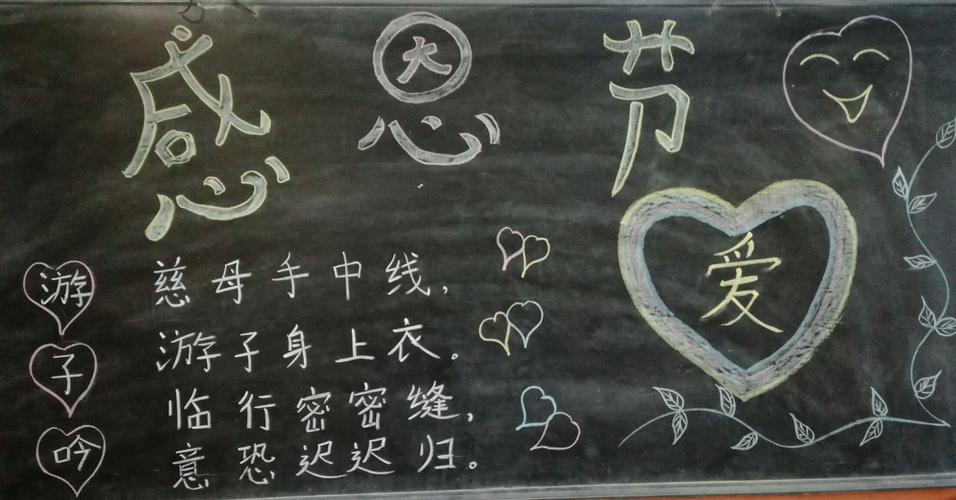 感恩节
爱
游子吟
慈母手中线，
游子身上衣。
临行密密缝，
意恐迟迟归。